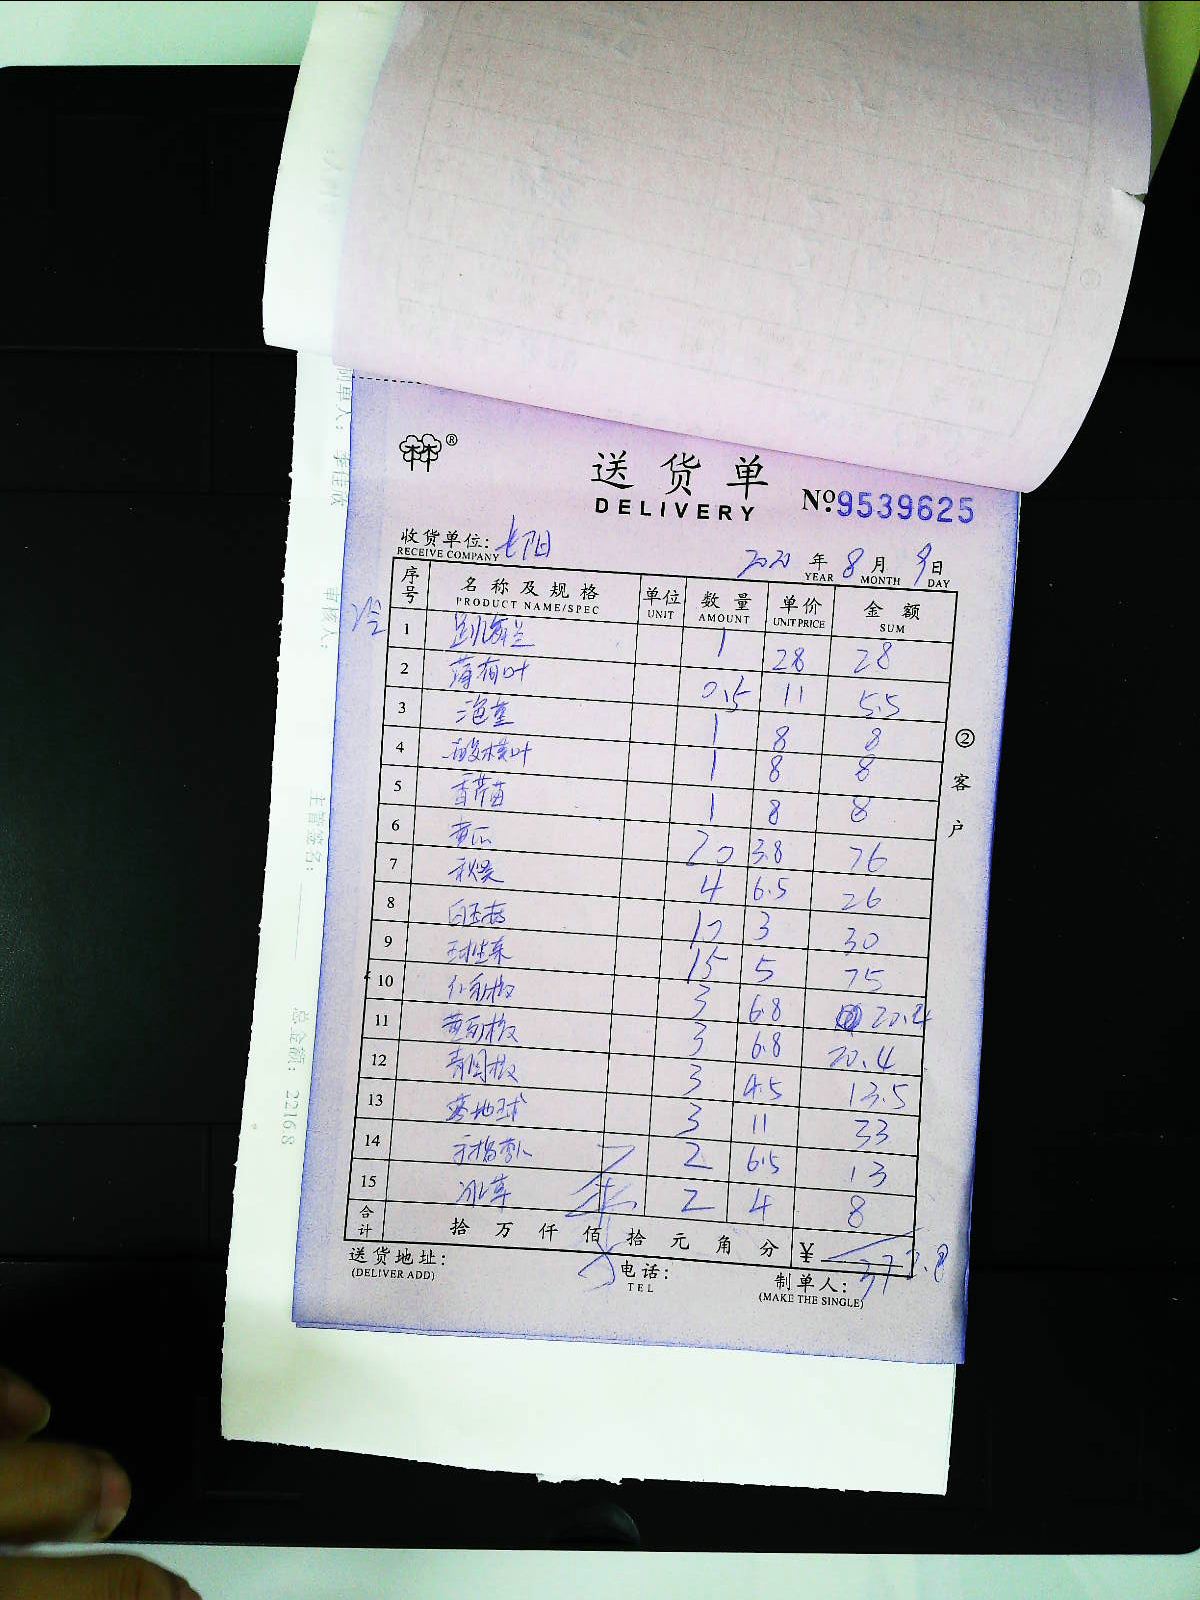 送货单
DELIVERY
№9539625
收货单位: 七阳
RECEIVE COMPANY
2020 年 8 月 9 日
YEAR MONTH DAY
序号 名称及规格 单位 数量 单价 金额
PRODUCT NAME/SPEC UNIT AMOUNT UNIT PRICE SUM
冷
1 1 28 28
2 薄荷叶 0.5 11 5.5
3 1 8 8
4 1 8 8
5 香芹苗 1 8 8
6 黄瓜 20 3.8 76
7 秋葵 4 6.5 26
8 白玉菇 10 3 30
9 球生菜 15 5 75
10 红彩椒 3 6.8 20.4
11 黄彩椒 3 6.8 20.4
12 青圆椒 3 4.5 13.5
13 3 11 33
14 2 6.5 13
15 冰草 2 4 8
合计 拾 万 仟 佰 拾 元 角 分 ¥ 372.8
送货地址:
(DELIVER ADD)
电话:
TEL
制单人:
(MAKE THE SINGLE)
②客户
审核人:
主管签名:
总金额: 2216.8